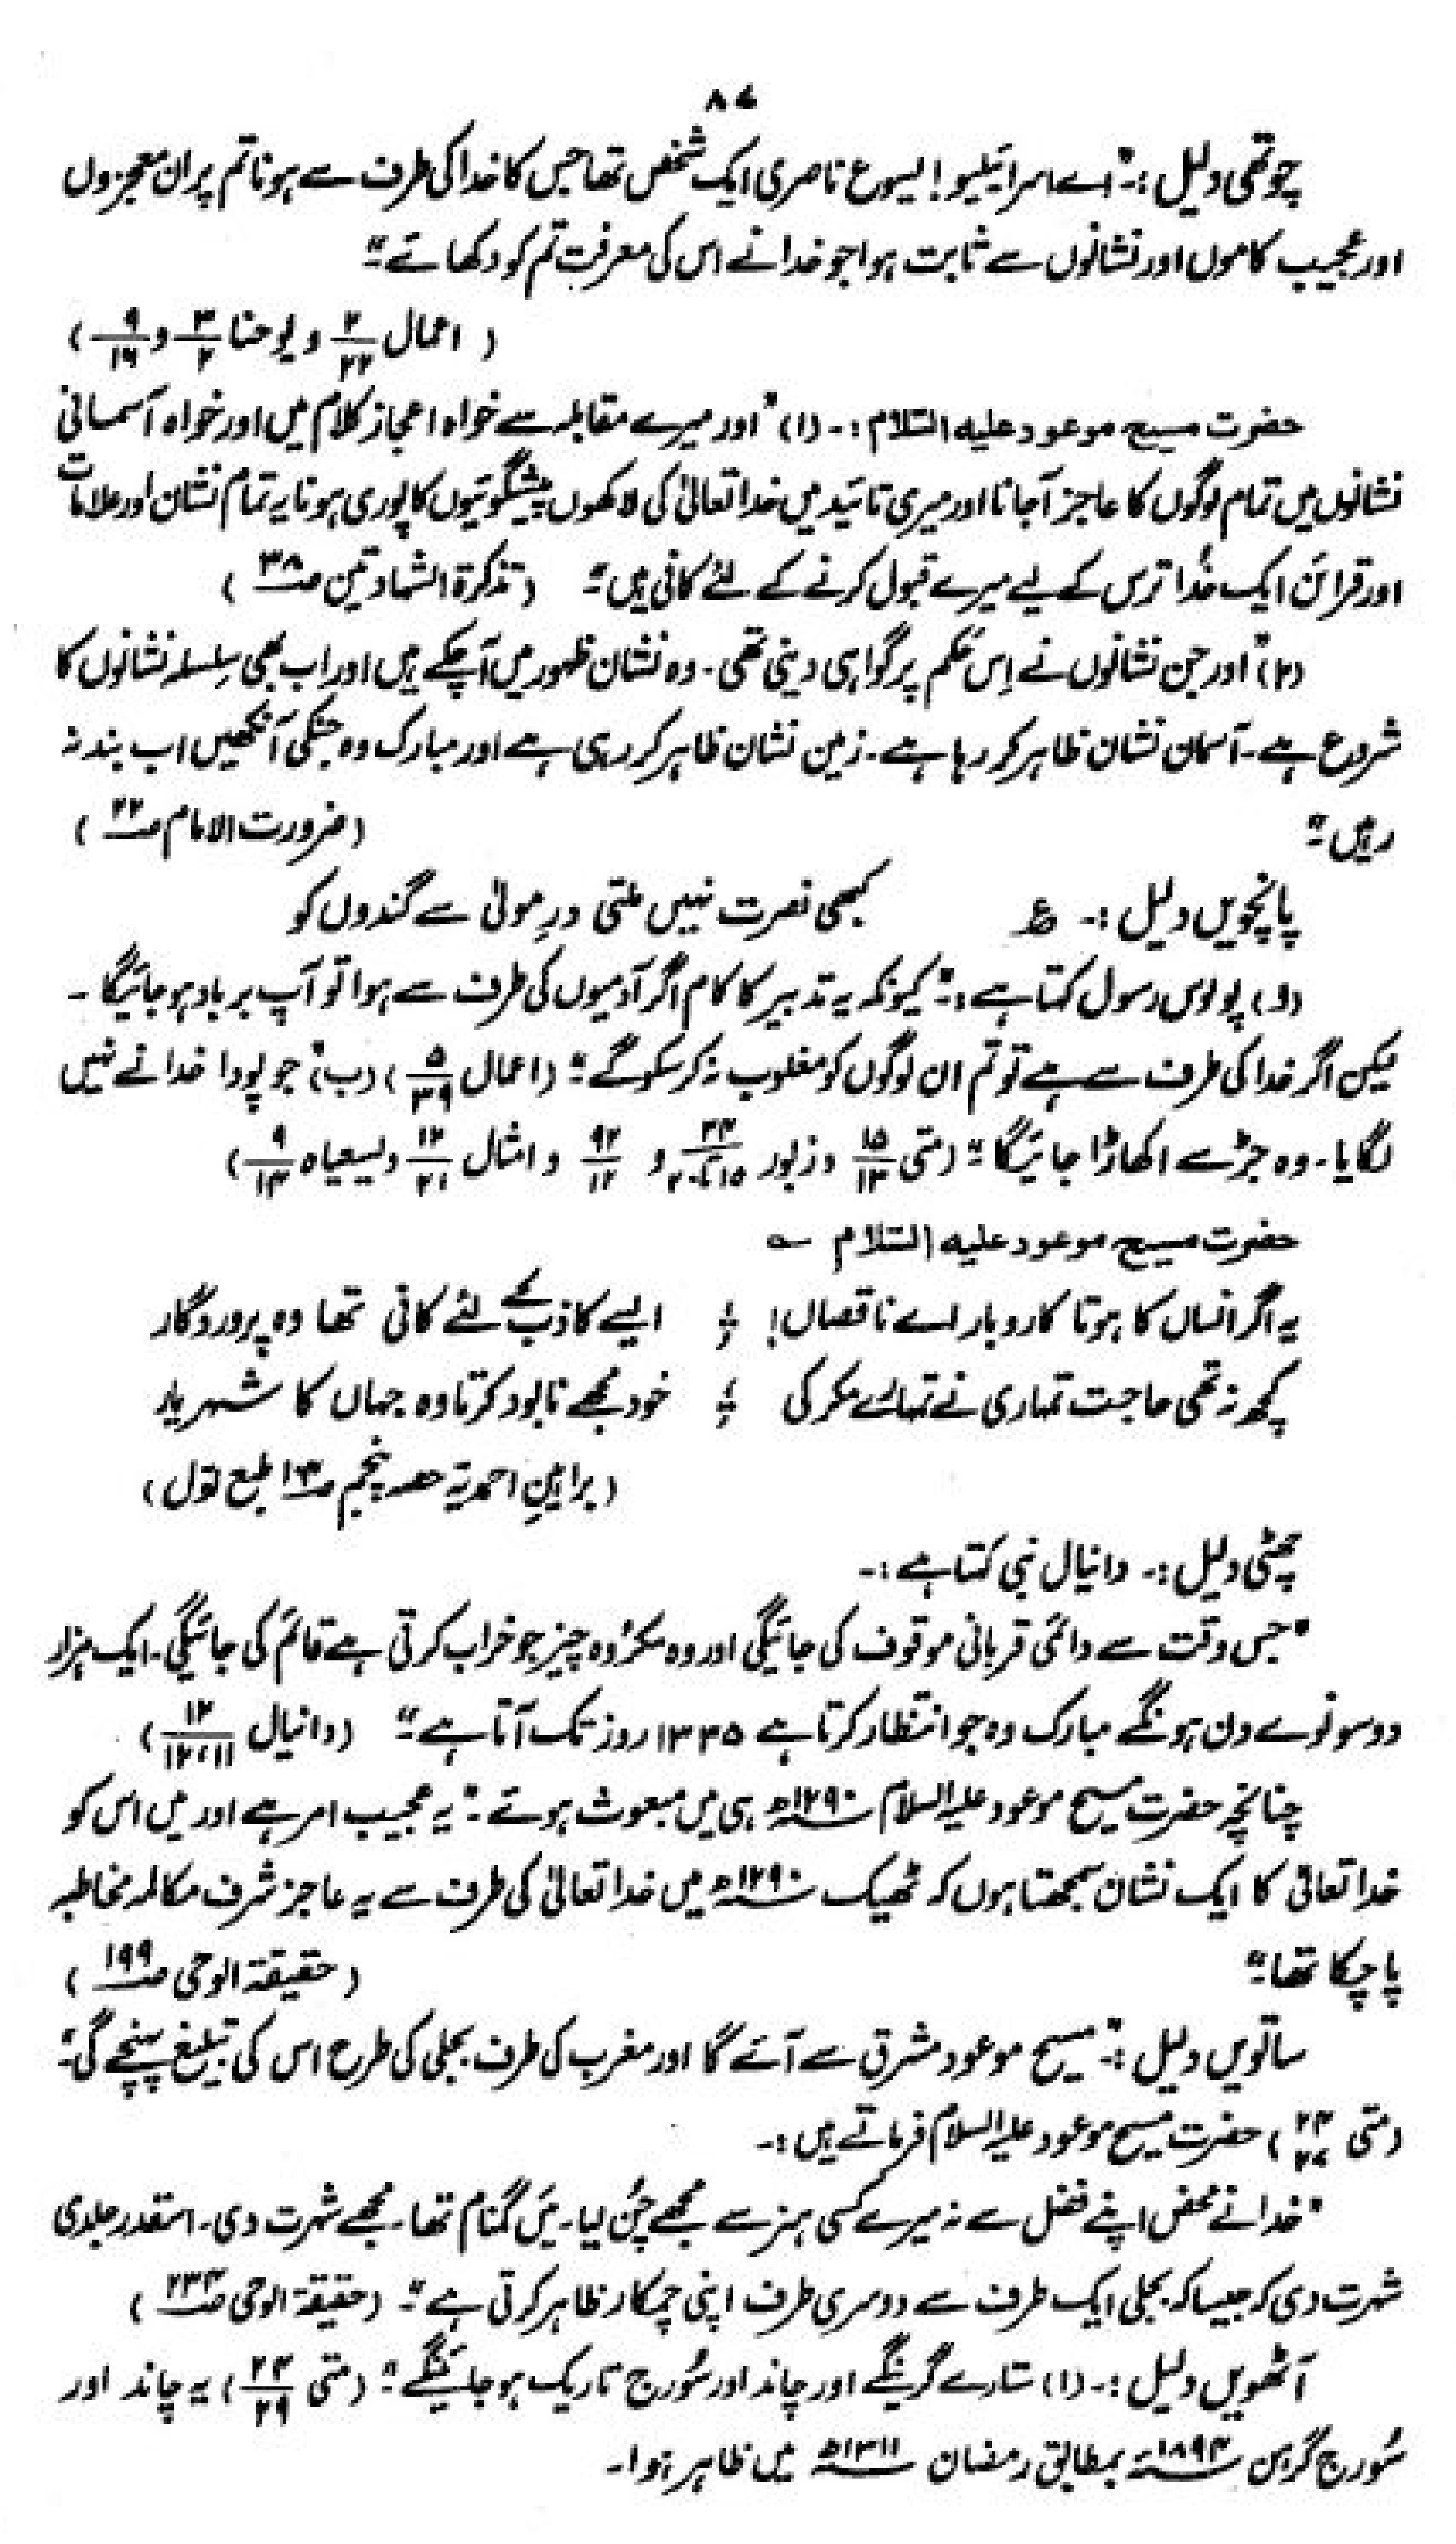 ۸۷
چوتھی دلیل :۔ "اے اسرائیلیو! یسوع ناصری ایک شخص تھا جس کا خدا کی طرف سے ہونا تم پر ان معجزوں
اور عجیب کاموں اور نشانوں سے ثابت ہوا جو خدا نے اس کی معرفت تم کو دکھائے"۔
( اعمال ۲/۲۲ و یوحنا ۳/۲ و ۹/۱۶ )
حضرت مسیح موعود علیہ السلام :۔ (۱) "اور میرے مقابلہ سے خواہ اعجاز کلام میں اور خواہ آسمانی
نشانوں میں تمام لوگوں کا عاجز آجانا اور میری تائید میں خدا تعالیٰ کی لاکھوں پیشگوئیوں کا پوری ہونا یہ تمام نشان اور علامات
اور قرائن ایک خدا ترس کے لیے میرے قبول کرنے کے لئے کافی ہیں"۔ (تذکرۃ الشہادتین صـ۳۸ )
(۲) "اور جن نشانوں نے اِس حَکم پر گواہی دینی تھی۔ وہ نشان ظہور میں آچکے ہیں اور اب بھی سِلسلہ نشانوں کا
شروع ہے۔ آسمان نشان ظاہر کر رہا ہے۔ زمین نشان ظاہر کر رہی ہے اور مبارک وہ جنکی آنکھیں اب بند نہ
رہیں"۔ (ضرورت الامام صـ۲۲ )
پانچویں دلیل :۔ ؏ کبھی نصرت نہیں ملتی درِ مولیٰ سے گندوں کو
(ا) پولوس رسول کہتا ہے :۔ "کیونکہ یہ تدبیر کا کام اگر آدمیوں کی طرف سے ہوا تو آپ برباد ہو جائیگا۔
لیکن اگر خدا کی طرف سے ہے تو تم ان لوگوں کو مغلوب نہ کر سکوگے"۔ (اعمال ۵/۳۹) (ب) "جو پودا خدا نے نہیں
لگایا۔ وہ جڑ سے اکھاڑا جائیگا"۔ (متی ۱۵/۱۳ و زبور ۳۴/۱۵ تا ۲۰ و ۹۲/۱۲ و امثال ۱۲/۲۱ و یسعیاہ ۹/۱۴)
حضرت مسیح موعود علیہ السلام ؎
یہ اگر انساں کا ہوتا کاروبار اے ناقصاں! ؛ ایسے کاذب کے لئے کافی تھا وہ پروردگار
کچھ نہ تھی حاجت تمہاری نے تمہارے مکر کی ؛ خود مجھے نابود کرتا وہ جہاں کا شہریار
(براہینِ احمدیہ حصہ پنجم صـ۱۳ طبع اوّل)
چھٹی دلیل :۔ دانیال نبی کہتا ہے :۔
"جس وقت سے دائمی قربانی موقوف کی جائیگی اور وہ مکروہ چیز جو خراب کرتی ہے قائم کی جائیگی۔ ایک ہزار
دو سو نوے دن ہونگے مبارک وہ جو انتظار کرتا ہے ۱۳۳۵ روز تک آتا ہے"۔ (دانیال ۱۲/۱۱،۱۲)
چنانچہ حضرت مسیح موعود علیہ السلام ۱۲۹۰ھ ہی میں مبعوث ہوئے۔ "یہ عجیب امر ہے اور میں اس کو
خدا تعالیٰ کا ایک نشان سمجھتا ہوں کہ ٹھیک ۱۲۹۰ھ میں خدا تعالیٰ کی طرف سے یہ عاجز شرف مکالمہ مخاطبہ
پا چکا تھا"۔ (حقیقۃ الوحی صـ۱۹۹ )
ساتویں دلیل :۔ "مسیح موعود مشرق سے آئے گا اور مغرب کی طرف بجلی کی طرح اس کی تبلیغ پہنچے گی"۔
(متی ۲۴/۲۷) حضرت مسیح موعود علیہ السلام فرماتے ہیں :۔
"خدا نے محض اپنے فضل سے نہ میرے کسی ہنر سے مجھے چُن لیا۔ میں گمنام تھا۔ مجھے شہرت دی۔ اسقدر جلدی
شہرت دی کہ جیسا کہ بجلی ایک طرف سے دوسری طرف اپنی چمکار ظاہر کرتی ہے"۔ (حقیقۃ الوحی صـ۲۳۴ )
آٹھویں دلیل :۔ (۱) ستارے گرینگے اور چاند اور سُورج تاریک ہو جائینگے"۔ (متی ۲۴/۲۹) یہ چاند اور
سُورج گرہن ۱۸۹۴ء بمطابق رمضان ۱۳۱۱ھ میں ظاہر ہوا۔